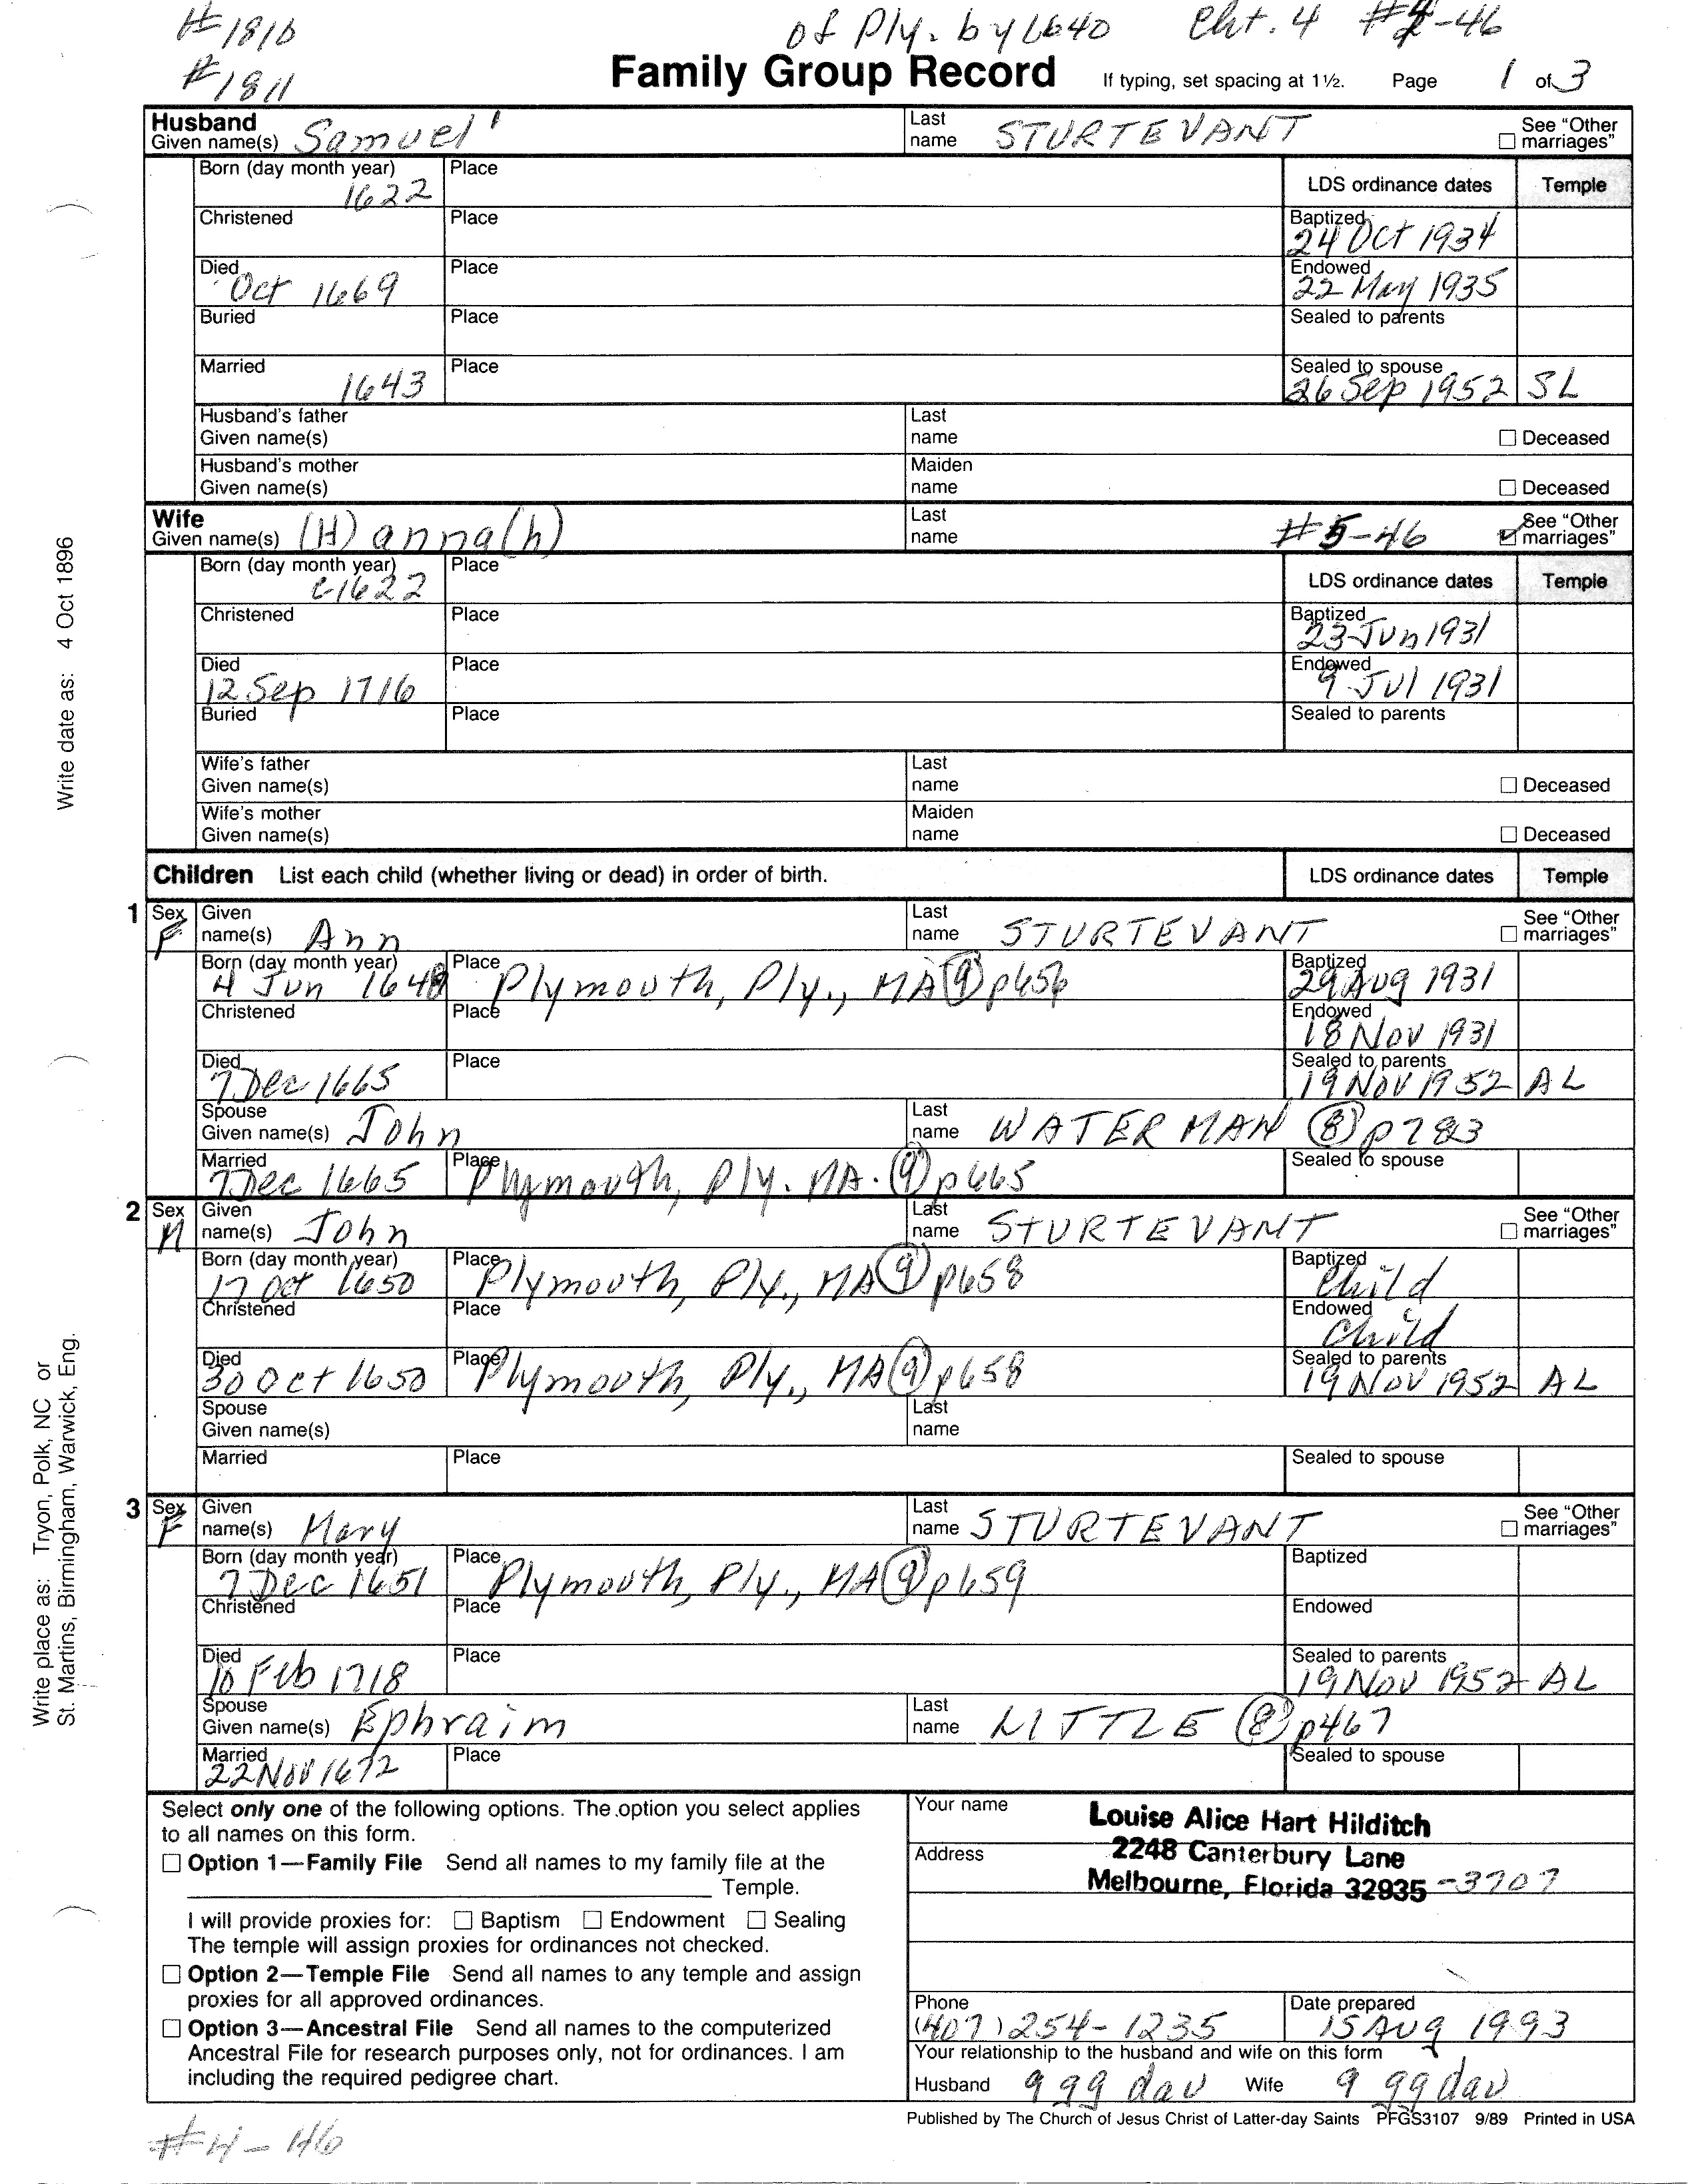 #1810
#1811
of Ply. by 1640 Cht. 4 #4-46
Family Group Record If typing, set spacing at 1½. Page 1 of 3
Husband
Given name(s) Samuel Last name STURTEVANT ☐ See "Other marriages"
Born (day month year) 1622 Place LDS ordinance dates Temple
Christened Place Baptized 24 Oct 1934
Died Oct 1669 Place Endowed 22 May 1935
Buried Place Sealed to parents
Married 1643 Place Sealed to spouse 26 Sep 1952 SL
Husband's father Given name(s) Last name ☐ Deceased
Husband's mother Given name(s) Maiden name ☐ Deceased
Wife
Given name(s) (H)anna(h) Last name #5-46 ☑ See "Other marriages"
Born (day month year) c1622 Place LDS ordinance dates Temple
Christened Place Baptized 23 Jun 1931
Died 12 Sep 1716 Place Endowed 9 Jul 1931
Buried Place Sealed to parents
Wife's father Given name(s) Last name ☐ Deceased
Wife's mother Given name(s) Maiden name ☐ Deceased
Children List each child (whether living or dead) in order of birth. LDS ordinance dates Temple
1 Sex F Given name(s) Ann Last name STURTEVANT ☐ See "Other marriages"
Born (day month year) 4 Jun Place Plymouth, Ply., MA (9) Baptized 29 Aug 1931
Christened Place Endowed 18 Nov 1931
Died 7 Dec 1665 Place Sealed to parents 19 Nov 1952 AL
Spouse Given name(s) John Last name WATERMAN (8) p783
Married 7 Dec 1665 Place Plymouth, Ply. MA. (9) p665 Sealed to spouse
2 Sex M Given name(s) John Last name STURTEVANT ☐ See "Other marriages"
Born (day month year) 17 Oct 1650 Place Plymouth, Ply., MA (9) p658 Baptized Child
Christened Place Endowed Child
Died 30 Oct 1650 Place Plymouth, Ply., MA (9) p658 Sealed to parents 19 Nov 1952 AL
Spouse Given name(s) Last name
Married Place Sealed to spouse
3 Sex F Given name(s) Mary Last name STURTEVANT ☐ See "Other marriages"
Born (day month year) 7 Dec 1651 Place Plymouth, Ply., MA (9) p659 Baptized
Christened Place Endowed
Died 10 Feb 1718 Place Sealed to parents 19 Nov 1952 AL
Spouse Given name(s) Ephraim Last name LITTLE (8) p467
Married 22 Nov 1672 Place Sealed to spouse
Select only one of the following options. The option you select applies
to all names on this form.
☐ Option 1—Family File Send all names to my family file at the
Temple.
I will provide proxies for: ☐ Baptism ☐ Endowment ☐ Sealing
The temple will assign proxies for ordinances not checked.
☐ Option 2—Temple File Send all names to any temple and assign
proxies for all approved ordinances.
☐ Option 3—Ancestral File Send all names to the computerized
Ancestral File for research purposes only, not for ordinances. I am
including the required pedigree chart.
Your name Louise Alice Hart Hilditch
Address 2248 Canterbury Lane
Melbourne, Florida 32935 -3707
Phone (407) 254-1235 Date prepared 15 Aug 1993
Your relationship to the husband and wife on this form
Husband 9 gg dau Wife 9 gg dau
Published by The Church of Jesus Christ of Latter-day Saints PFGS3107 9/89 Printed in USA
#4-46
Write date as: 4 Oct 1896
Write place as: Tryon, Polk, NC or
St. Martins, Birmingham, Warwick, Eng.